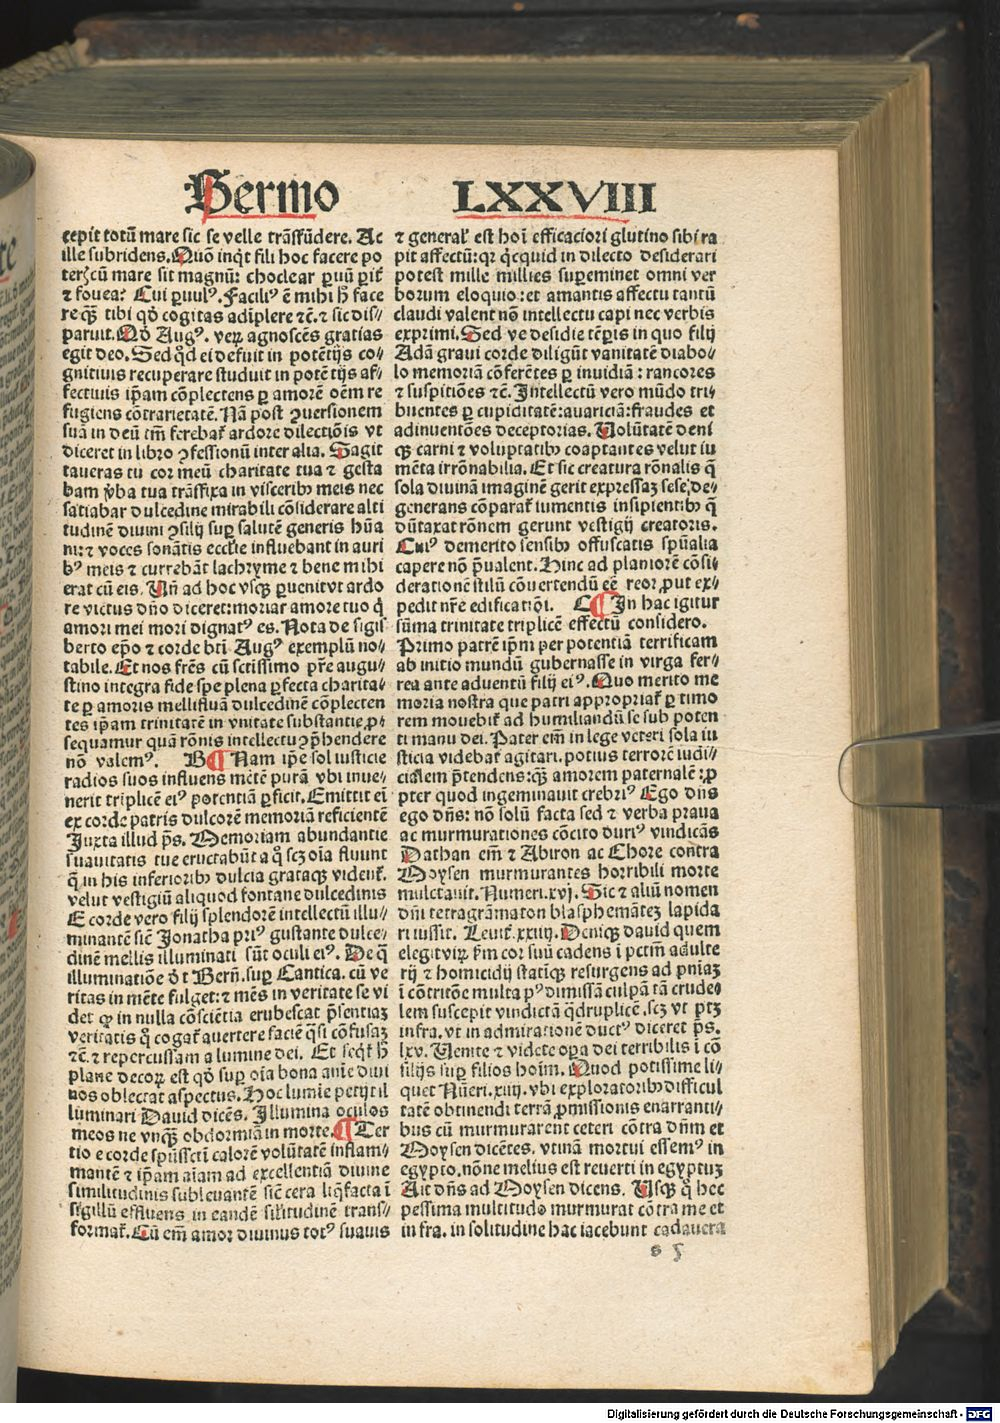 Sermo LXXVIII
cepit totū mare sic se velle trāsfūdere. Ac
ille subridens. Quō inqt fili hoc facere po
terꝭ cū mare sit magnū: choclear ꝑuū ꝑiť
⁊ fouea? Cui ꝑuulꝰ. Faciliꝰ ē mihi ħ face
re qꝫ̄ tibi qď cogitas adiplere ⁊c̄. ⁊ sic dis⸗
paruit. Qď Augꝰ. veꝝ agnoscēs gratias
egit deo. Sed qd ei defuit in potētijs co⸗
gnitiuis recuperare studuit in potētijs af⸗
fectiuis ip̄am cōplectens ꝑ amorē oēm re
fugiens cōtrarietatē. Nā post ꝯuersionem
suā in deū tm̄ ferebať ardore dilectiōis vt
diceret in libro ꝯfessionū inter alia. Sagit
taueras tu cor meū charitate tua ⁊ gesta
bam v̓ba tua trāsfixa in visceribꝫ meis nec
satiabar dulcedine mirabili cōsiderare alti
tudinē diuini ꝯsilij suꝑ salutē generis hūa
ni: ⁊ voces sonātis eccľie influebant in auri
bꝰ meis ⁊ currebāt lachryme ⁊ bene mihi
erat cū eis. Vn̄ ad hoc vsqꝫ ꝑuenit vt ardo
re victus dn̄o diceret: moriar amore tuo q̇
amori mei mori dignatꝰ es. Nota de sigis
berto ep̄o ⁊ corde bti Augꝰ exemplū no⸗
tabile. Et nos frēs cū sctissimo pr̄e augu⸗
stino integra fide spe plena ꝑfecta charita⸗
te ꝑ amoris mellifluā dulcedinē cōplecten
tes ip̄am trinitatē in vnitate substantie, ꝓ⸗
sequamur quā rōnis intellectu ꝯp̄hendere
nō valemꝰ. B ¶ Nam ip̄e sol iusticie
radios suos influens mētē purā vbi inue⸗
nerit triplicē eiꝰ potentiā ꝑficit. Emittit ei
ex corde patris dulcorē memoriā reficientē
Juxta illud p̄s. Memoriam abundantie
suauitatis tue eructabūt a q̊ scꝫ oīa fluunt
q̄ in his inferioribꝫ dulcia grataqꝫ videnť.
velut vestigiū aliquod fontane dulcedinis
E corde vero filij splendorē intellectū illu⸗
minantē sic̄ Jonatha priꝰ gustante dulce⸗
dinē mellis illuminati sūt oculi eiꝰ. De q̄
illuminatiōe ďt Bern̄. suꝑ Cantica. cū ve
ritas in mēte fulget: ⁊ mēs in veritate se vi
det qꝫ in nulla cōsciētia erubescat p̄sentiaꝫ
veritatis q̊ cogať auertere faciē q̇si cōfusaꝫ
⁊c̄. ⁊ repercussam a lumine dei. Et seqť ħ
plane decoꝝ est qď suꝑ oīa bona aīe diui
nos oblectat aspectus. Hoc lumīe petijt il
luminari Dauid dicēs. Illumina oculos
meos ne vnqꝫ̄ obdormiā in morte. ¶ Ter
tio e corde sp̄ūssctī calorē volūtatē inflam⸗
mantē ⁊ ip̄am aīam ad excellentiā diuine
similitudinis subleuantē sic̄ cera liq̄facta i
sigillū effluens in eandē silitudinē trans⸗
formať. Cū em̄ amor diuinus totꝰ suauis
⁊ generaľ est hoi efficaciori glutino sibi ra
pit affectū: qꝛ q̇cquid in dilecto desiderari
potest mille millies suꝑeminet omni ver
borum eloquio: et amantis affectu tantū
claudi valent nō intellectu capi nec verbis
exprimi. Sed ve desidie tēꝑis in quo filij
Adā graui corde diligūt vanitatē diabo⸗
lo memoriā cōferētes ꝑ inuidiā: rancores
⁊ suspitiōes ⁊c̄. Intellectū vero mūdo tri⸗
buentes ꝑ cupiditatē: auariciā: fraudes et
adinuentōes deceptorias. Volūtatē deni
qꝫ carni ⁊ voluptatibꝫ coaptantes velut iu
mēta irrōnabilia. Et sic creatura rōnalis q̄
sola diuinā imaginē gerit expressaꝫ sese de⸗
generans cōparať iumentis insipientibꝫ q̄
dūtaxat rōnem gerunt vestigij creatoris.
Cuiꝰ demerito sensibꝫ offuscatis sp̄ualia
capere nō p̄ualent. Hinc ad planiorē cōsi⸗
derationē stilū cōuertendū eē reor ꝓut ex⸗
pedit nr̄e edificatiōi. C ¶ In hac igitur
sūma trinitate triplicē effectū considero.
Primo patrē ip̄m per potentiā terrificam
ab initio mundū gubernasse in virga fer⸗
rea ante aduentū filij eiꝰ. Quo merito me
moria nostra que patri appropriať ꝑ timo
rem mouebiť ad humiliandū se sub poten
ti manu dei. Pater em̄ in lege veteri sola iu
sticia videbať agitari. potius terrorē iudi⸗
cialem p̄tendens: qꝫ̄ amorem paternalē: ꝓ
pter quod ingeminauit crebriꝰ Ego dn̄s
ego dn̄s: nō solū facta sed ⁊ verba praua
ac murmurationes cōcito duriꝰ vindicās
Dathan em̄ ⁊ Abiron ac Chore contra
Moysen murmurantes horribili morte
mulctauit. Numeri. xvj. Sic ⁊ aliū nomen
dn̄i tetragrāmaton blasphemāteꝫ lapida
ri iussit. Leuiť. xxiiij. Deniqꝫ dauid quem
elegit viꝝ ẜm cor suū cadens i pctm̄ adulte
rij ⁊ homicidij statiqꝫ resurgens ad pn̄iaꝫ
i cōtritōe multa pꝰ dimissā culpā tā crude⸗
lem suscepit vindictā q̇druplicē. scꝫ vt ptꝫ
infra. vt in admirationē ductꝰ diceret p̄s.
lxv. Venite ⁊ videte oꝑa dei terribilis i cō
silijs suꝑ filios hoim. Quod potissime li⸗
quet Nūeri. xiiij. vbi exploratoribꝫ difficul
tatē obtinendi terrā ꝓmissionis enarranti⸗
bus cū murmurarent ceteri cōtra dn̄m et
Moysen dicētes. vtinā mortui essemꝰ in
egypto. nōne melius est reuerti in egyptuꝫ
Ait dn̄s ad Moysen dicens. Vsqꝫ q̊ hec
pessima multitudo murmurat cōtra me et
infra. in solitudine hac iacebunt cadauera
s 5
Digitalisierung gefördert durch die Deutsche Forschungsgemeinschaft - DFG